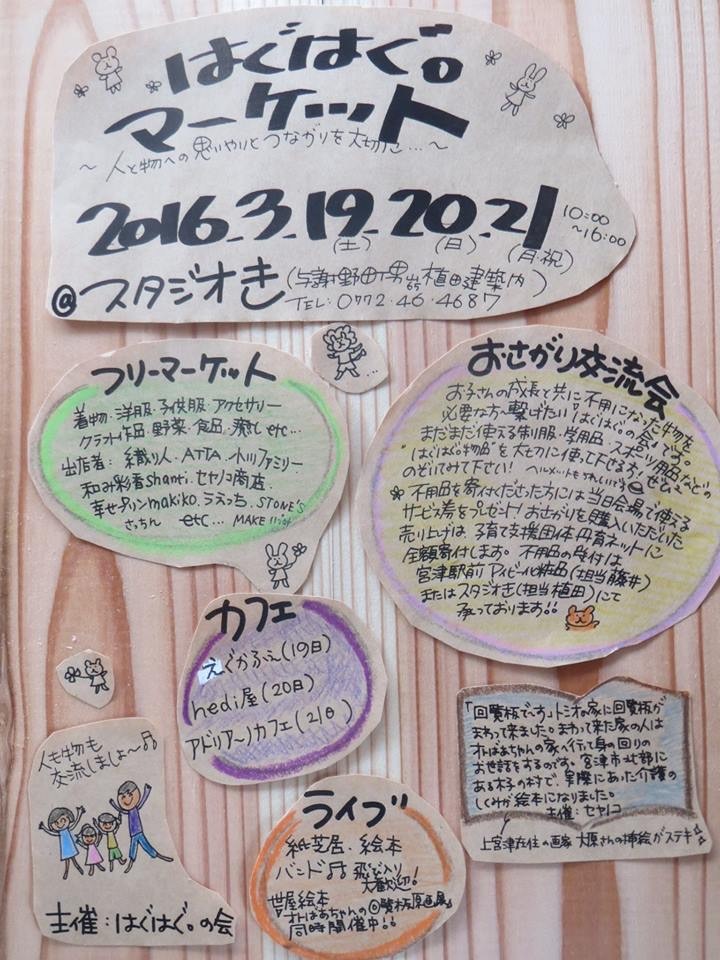 はぐはぐ。
マーケット
～人と物への思いやりとつながりを大切に…～
2016.3.19.20.21
(土) (日) (月・祝)
10:00
～16:00
@スタジオき(与謝野町男山65植田建築内)
TEL:0772・46・4687
フリーマーケット
着物・洋服・子供服・アクセサリー
クラフト作品・野菜・食品・癒し etc…
出店者：織り人・ATTA・小川ファミリー
和み彩香shanti・セヤノコ商店
幸せプリンmakiko・うえっち・STONE'S
さっちん etc… MAKE
おさがり交流会
お子さんの成長と共に不用になった物を
必要な方へ繋げたい『はぐはぐ。の会』です。
まだまだ使える制服・学用品・スポーツ用品などの
"はぐはぐ。物品"を大切に使って下さる方!ぜひ
のぞいてみて下さい! ヘルメットもうれしいです
※不用品を寄付くださった方には当日会場で使える
サービス券をプレゼント!おさがりを購入いただいた
売り上げは、子育て支援団体丹育ネットに
全額寄付します。不用品の受付は
宮津駅前アイビー化粧品(担当藤井)
またはスタジオき(担当植田)にて
承っております!!
カフェ
えぐかふぇ(19日)
hedi屋(20日)
アドリアーノカフェ(21日)
人も物も
交流しましょ～♫
主催：はぐはぐ。の会
ライブ
紙芝居・絵本
バンド♫ 飛び入り
大歓迎!
世屋絵本
『オトばあちゃんの回覧板原画展』
同時開催中!!
「回覧板です。」トミオの家に回覧板が
まわって来ました。まわって来た家の人は
オトばあちゃんの家へ行って身の回りの
お世話をするのです。宮津市北部に
ある木子の村で、実際にあった介護の
しくみが絵本になりました。
主催：セヤノコ
上宮津在住の画家 大原さんの挿絵がステキ☆